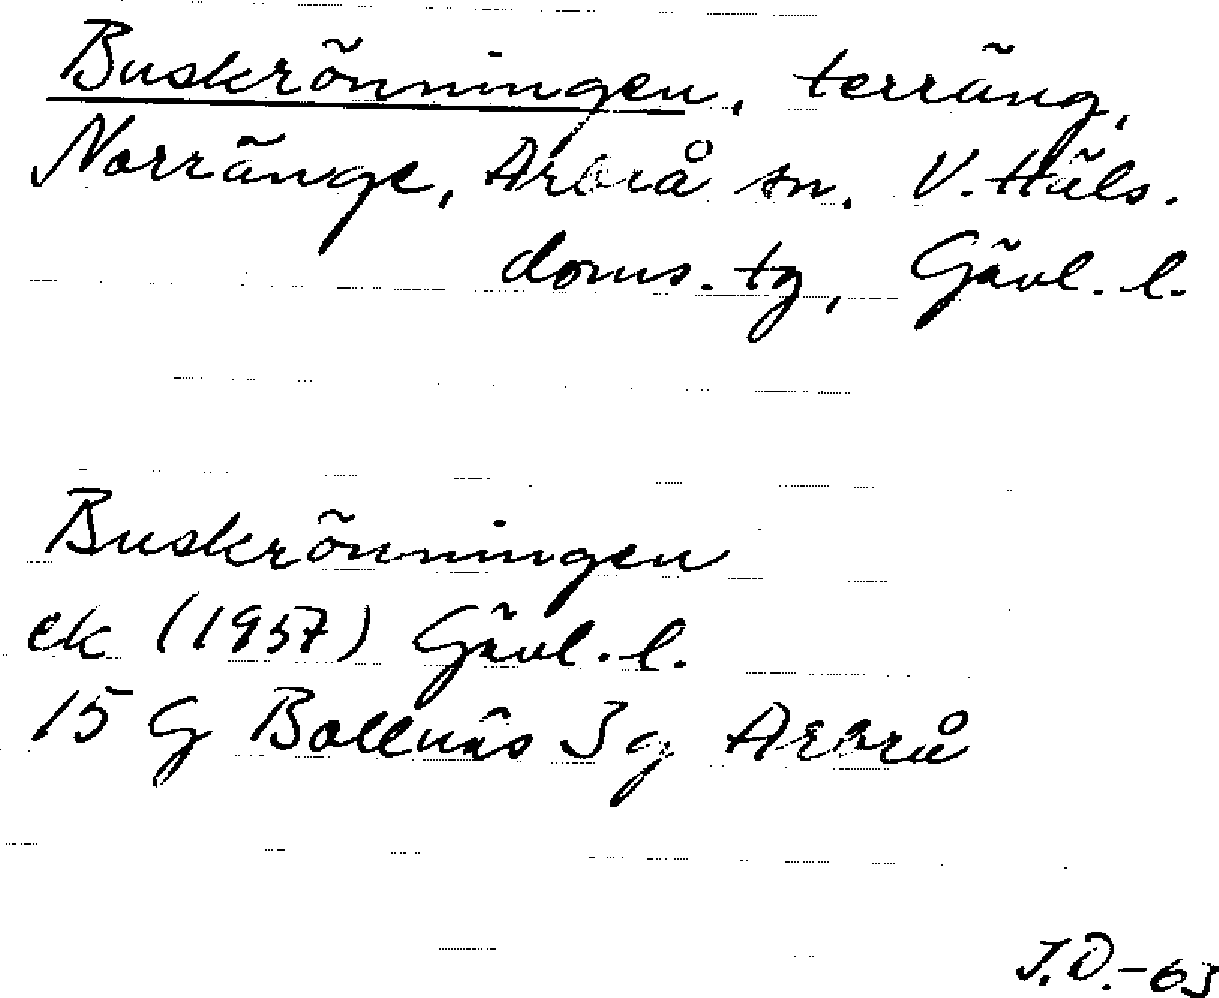 Buskrönningen, terräng,
Norränge, Arbrå sn. V. Häls.
doms. tg, Gävl. l.
Buskrönningen
ek (1957) Gävl. l.
15 G Bollnäs 3 g Arbrå
J.D.-63